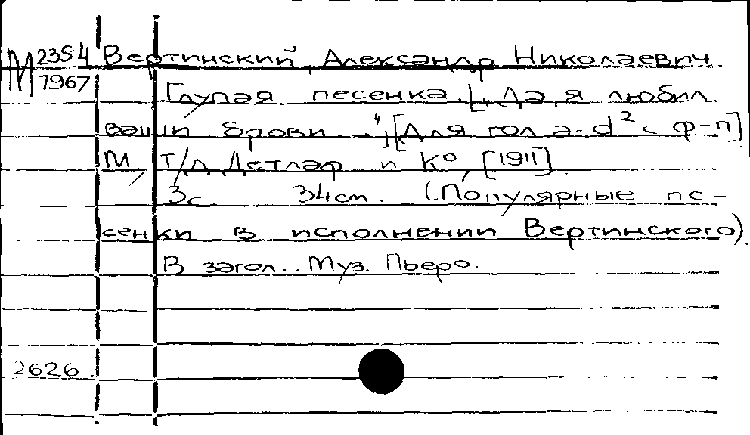 М 2354 Вертинский, Александр Николаевич.
1967
Глупая песенка. ["Да, я любил
ваши брови..."] [Для гол. a-d² с ф-п]
М, т/д Детлаф и К°, [1911].
3с. 34см. (Популярные пе-
сенки в исполнении Вертинского).
В загол.: Муз. Пьеро.
2626